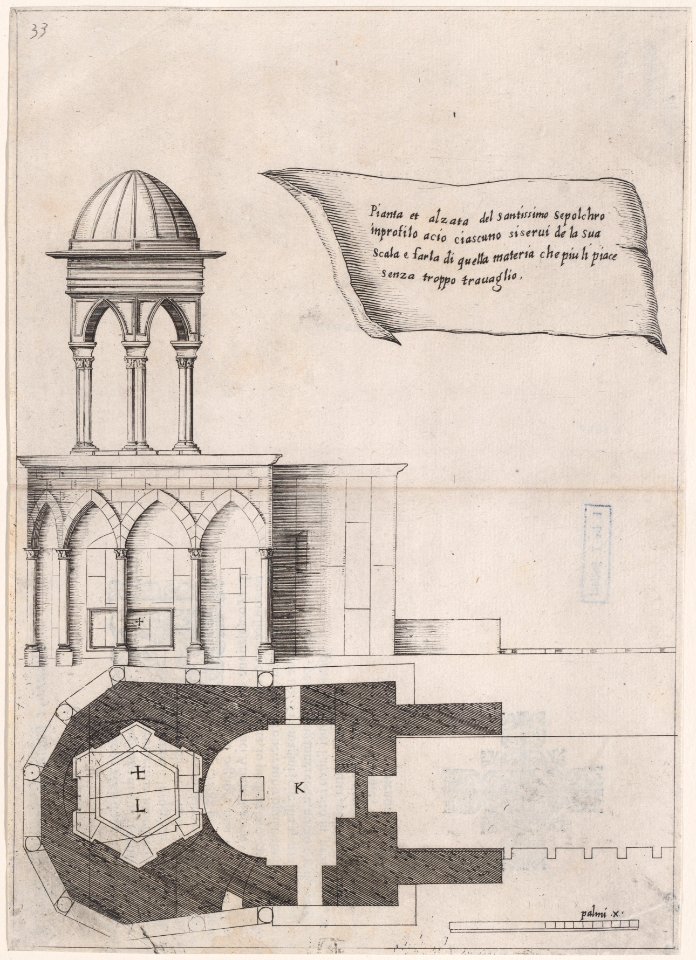 33
Pianta et alzata del santissimo sepolchro
inprofilo acio ciascuno si serui de la sua
scala e farla di quella materia che piu li piace
senza troppo trauaglio.
L
K
palmi .x.